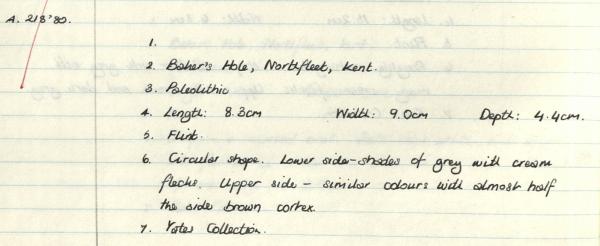 A. 218'80.
1.
2. Baker's Hole, Northfleet, Kent.
3. Paleolithic
4. Length: 8.3cm Width: 9.0cm Depth: 4.4cm.
5. Flint.
6. Circular shape. Lower side-shades of grey with cream
flecks. Upper side - similar colours with almost half
the side brown cortex.
7. Yates Collection.